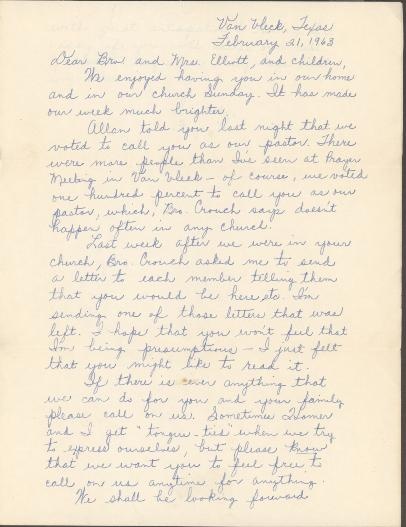 Van Vleck, Texas
February 21, 1963
Dear Bro. and Mrs. Elliott, and children,
We enjoyed having you in our home
and in our church Sunday. It has made
our week much brighter.
Allan told you last night that we
voted to call you as our pastor. There
were more people than I've seen at Prayer
Meeting in Van Vleck - of course, we voted
one hundred percent to call you as our
pastor, which, Bro. Crouch says doesn't
happen often in any church.
Last week after we were in your
church, Bro. Crouch asked me to send
a letter to each member telling them
that you would be here etc. I'm
sending one of those letters that was
left. I hope that you won't feel that
I'm being presumptious - I just felt
that you might like to read it.
If there is ever anything that
we can do for you and your family
please call on us. Sometimes Homer
and I get "tongue-ties" when we try
to express ourselves, but please know
that we want you to feel free to
call on us anytime for anything.
We shall be looking forward